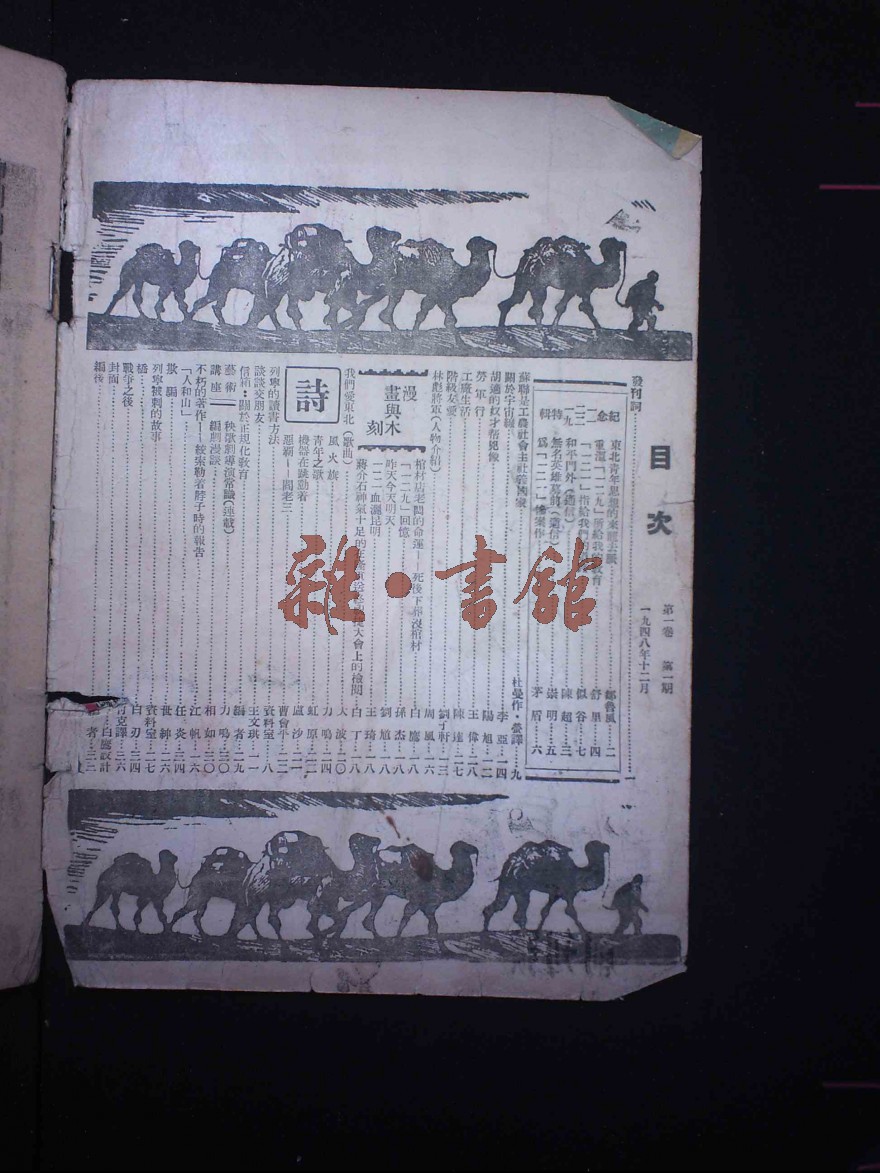 目次
第一卷 第一期
一九四八年十二月
發刊詞……一
紀念一二九特輯
東北青年思想的來龍去脈……鄒魯風…二
重溫「一二九」所給我們的教育……舒里…四
「一二一」指給我們……似谷…七
和平門外(通信)……陳超…三
無名英雄墓前(通信)……崇明…五
為「一二一」慘案作……茅盾…六
蘇聯是工農社會主社義國家……杜曼作•譯…九
關於宇宙線……李亞…一四
胡適的奴才帮兇像……陽旭…一二
勞軍行……王偉…二八
工廠生活……陳達…二七
階級友愛……劉于軒…一三
林彪將軍(人物介紹)……周風…一六
漫畫與木刻
棺材店老闆的命運——死後下葬沒棺材……白鷹…一八
「一二九」回憶……孫杰…一八
昨天今天明天……劉旭…一八
一二一血灑昆明……王琦…一八
蔣介石神氣十足的在大會上的檢閱……白丁…一八
我們愛東北(歌曲)……大波…一〇
詩
風火旗……力鳴…一四
青年之歌……虹原…一二
機器在跳動着……盧沙…一一
惡霸——閻老三……曹會平…二二
列寧的讀書方法……資料室…一八
談談交朋友……王文琪…一一
信箱:關於正規化教育……編者…二九
藝術講座
秧歌劇導演常識(連載)……力鳴…三〇
編劇漫談……相如…三〇
不朽的著作——絞索勒着脖子時的報告……江帆…一六
「人和山」……任炎…二四
欺騙……世紳…二六
列寧被刺的故事……資料室…二七
橋……白刃…二四
戰爭之後……克譯…二六
封面……白鷹設計
編後……編者…三三
雜•書館